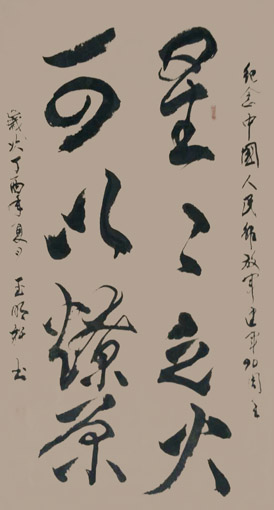 纪念中国人民解放军建军90周年
星々之火
可以燎原
岁次丁酉年夏日 王明放书